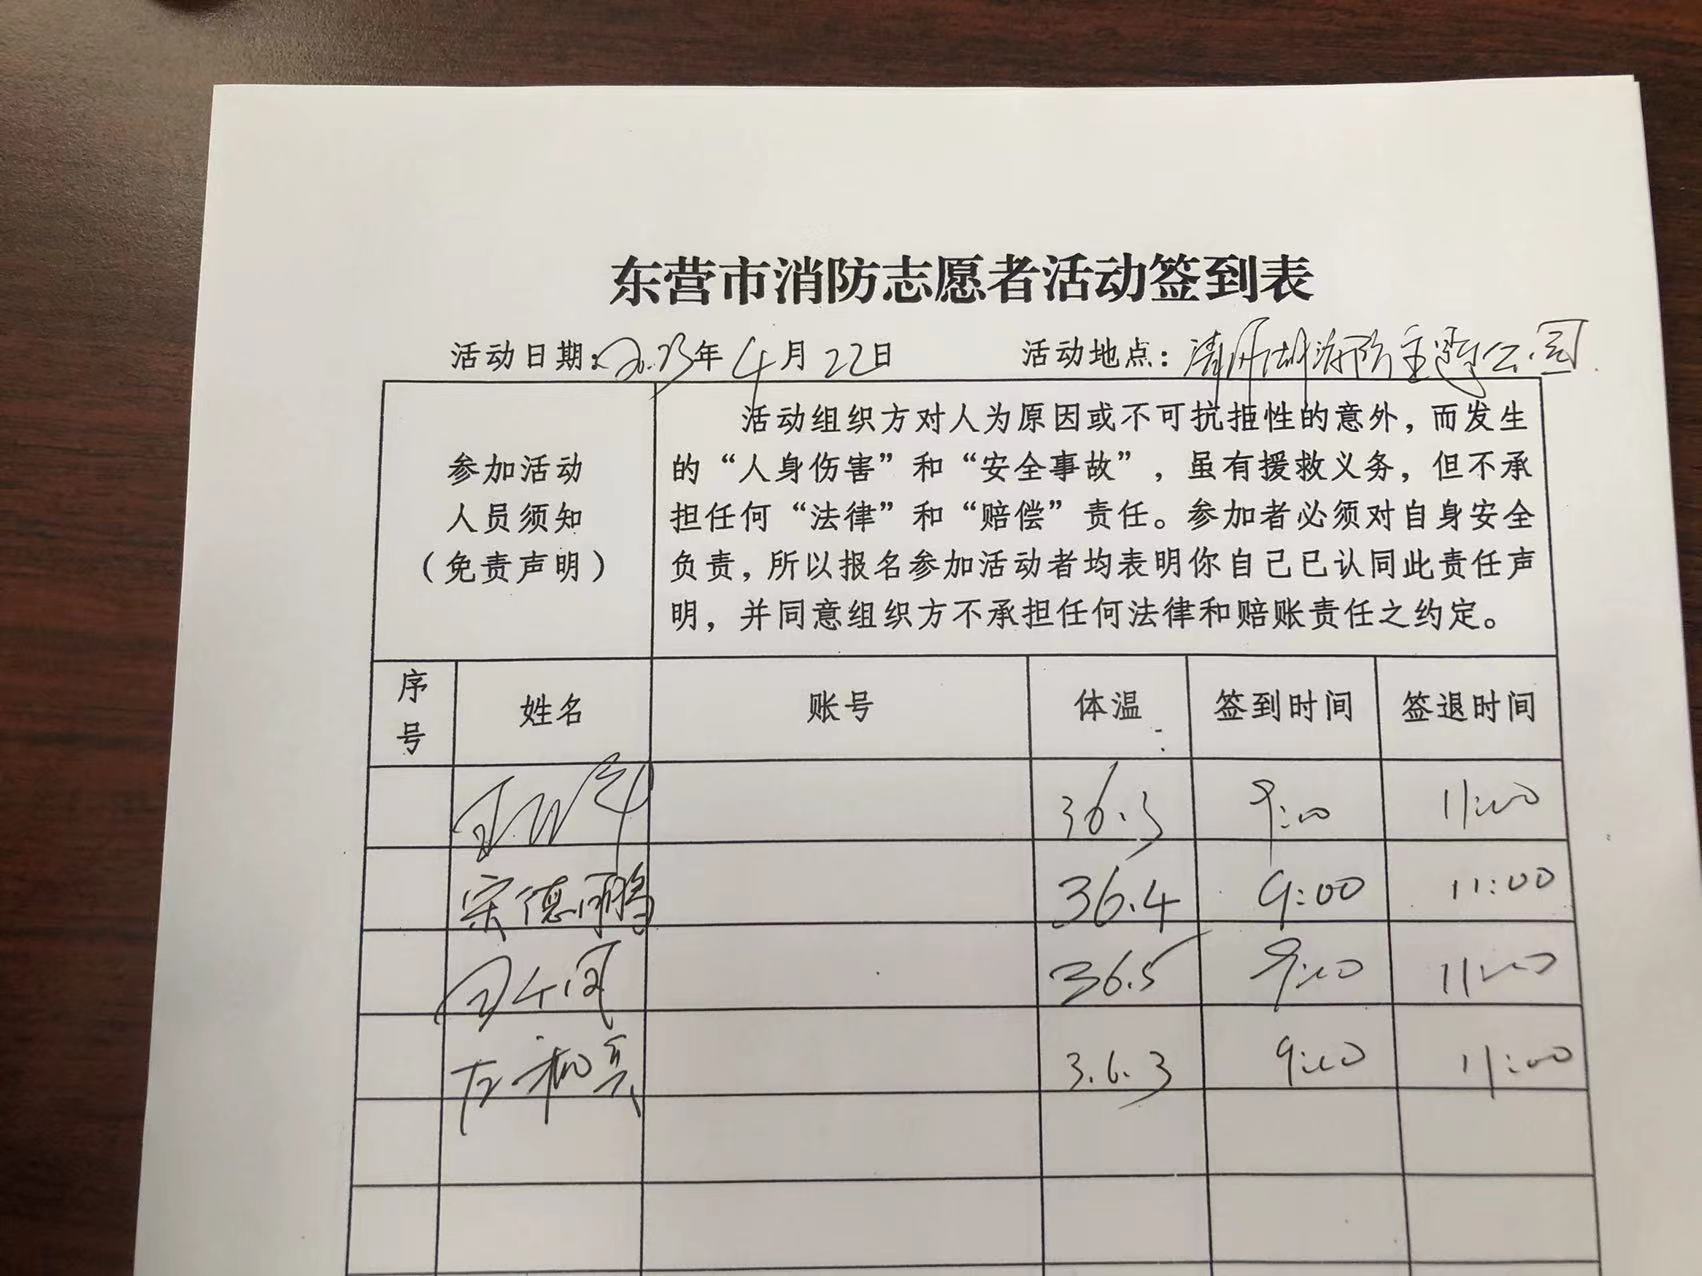 东营市消防志愿者活动签到表
活动日期:2023年4月22日 活动地点:清风湖消防主题公园
参加活动
人员须知
(免责声明)
活动组织方对人为原因或不可抗拒性的意外,而发生
的“人身伤害”和“安全事故”,虽有援救义务,但不承
担任何“法律”和“赔偿”责任。参加者必须对自身安全
负责,所以报名参加活动者均表明你自己已认同此责任声
明,并同意组织方不承担任何法律和赔账责任之约定。
序号 姓名 账号 体温 签到时间 签退时间
36.3 9:00 11:00
宋德鹏 36.4 9:00 11:00
36.5 9:00 11:00
左 36.3 9:00 11:00